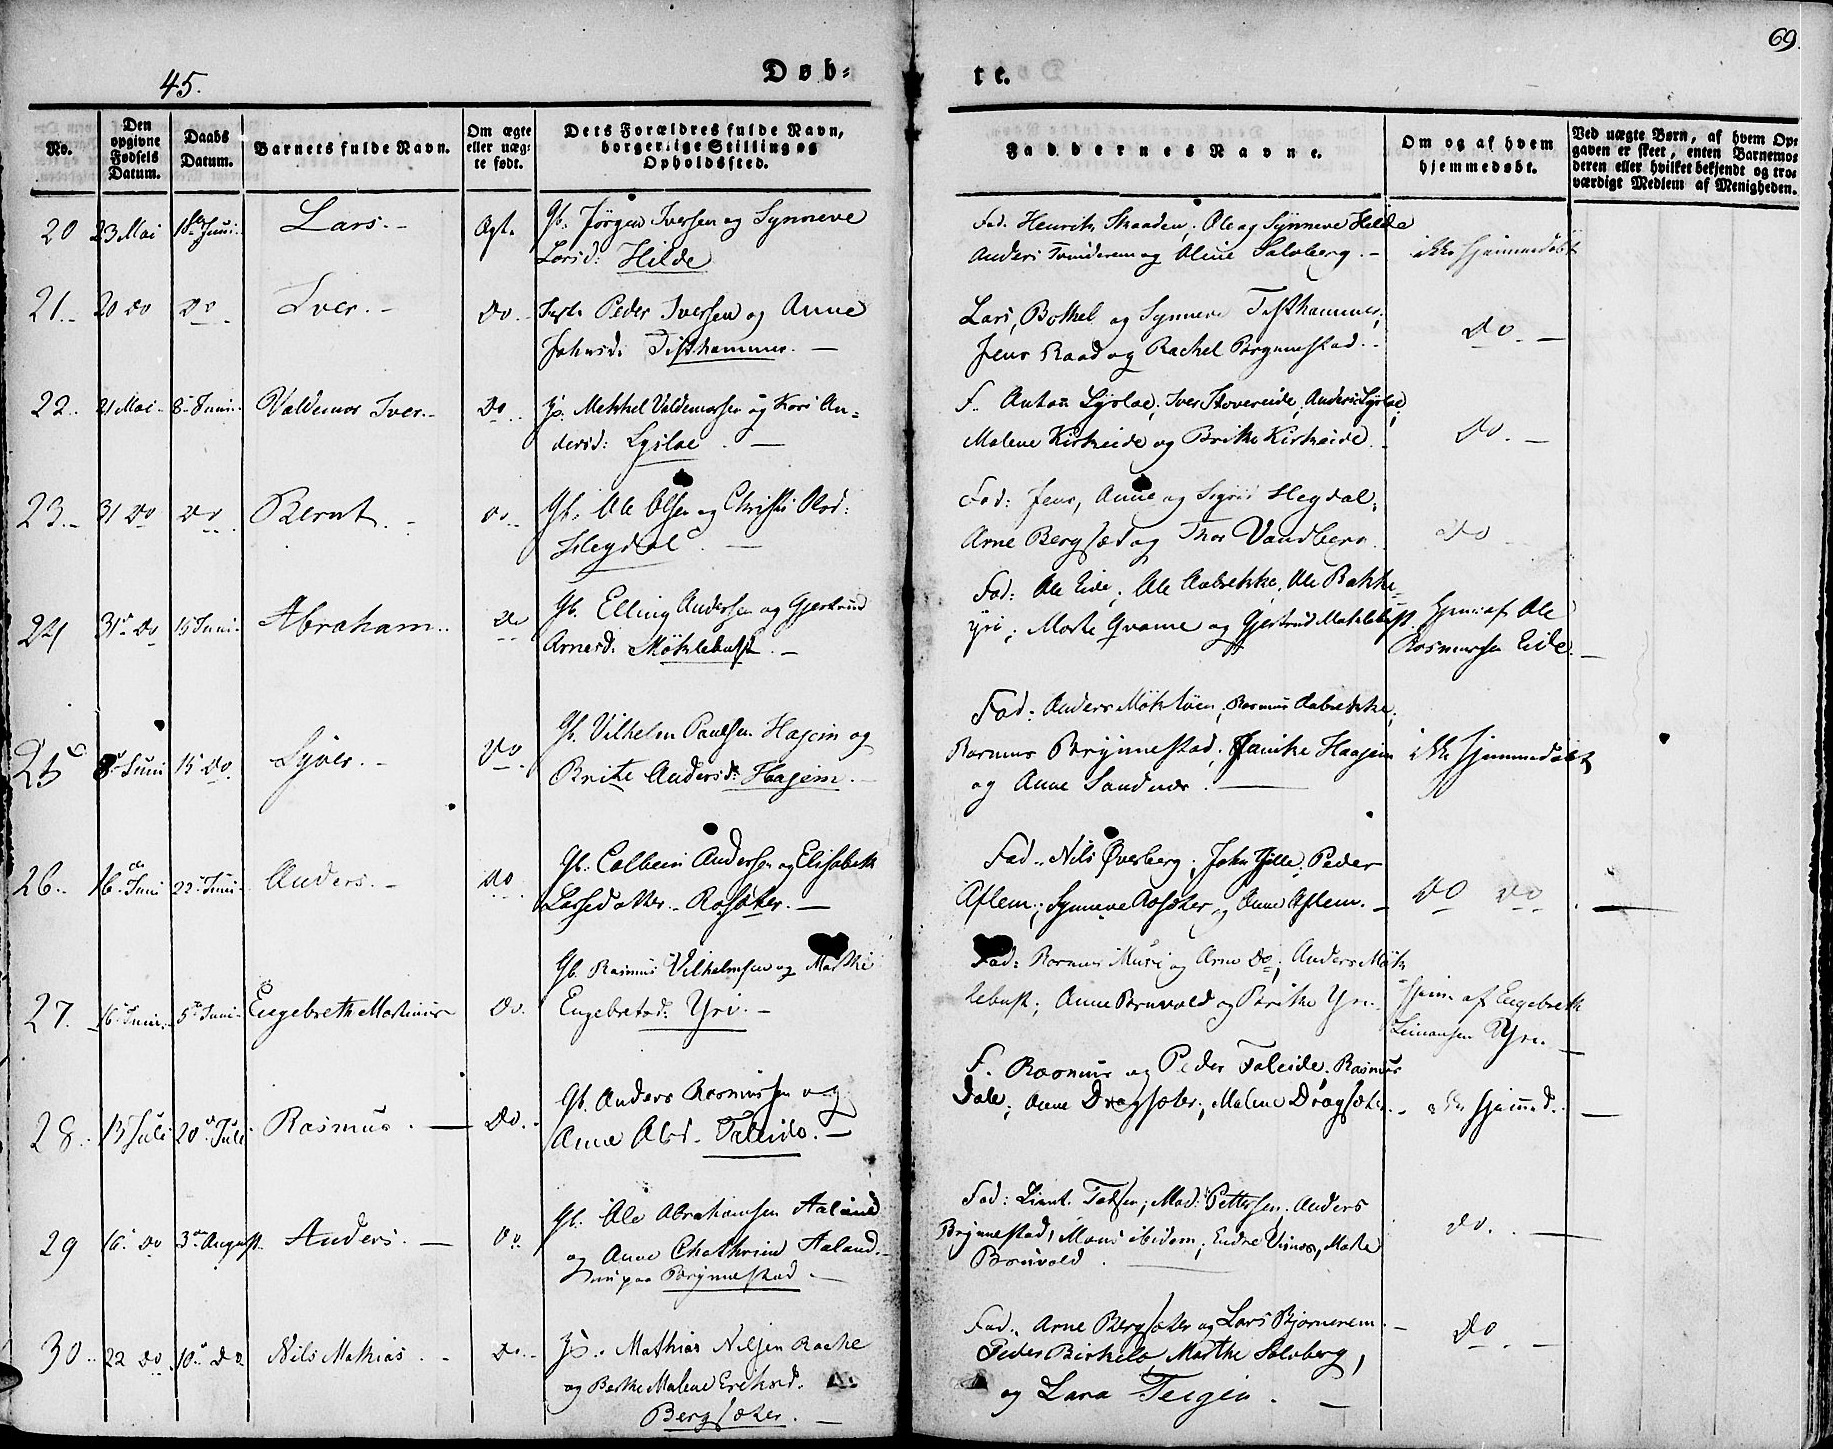 69.
45.
Døb=
te.
No.
Den opgivne Fødsels Datum.
Daabs Datum.
Barnets fulde Navn.
Om ægte eller uæg- te født.
Dets Forældres fulde Navn, borgerlige Stilling og Opholdssted.
Faddernes Navne.
Om og af hvem hjemmedøbt.
Ved uægte Børn, af hvem Op-
gaven er skeet, enten Barnemo-
deren eller hvilket bekjendt og tro-
værdigt Medlem af Menigheden.
20 23 Mai Juni Lars. Ægt. Gb. Jørgen Iversen og Synneve
Larsd: Hilde
Fad. Henrik Skaaden; Ole og Synneve Hilde
Anders Tvinderem og Oline Solvberg.
ikke hjemmedøbt
21. 20 do do Iver. do. Peder Iversen og Anne
Johnsd: Tisthammer.
Lars, Bothel og Synneve Tisthammer;
Jens Raad og Rachel Brynnestad.
do.
22. 21 Mai 8 Juni Valdemar Iver. do. Mekkel Valdemarsen og Kari An-
dersd: Lysloe.
F. Anton Lysloe; Iver Hovereide; Anders Lysloe;
Malene Kirkeide og Brithe Kirkeide.
do.
23. 31 do do Bernt. do. Gb. Ole Olsen og Christi Olsd:
Heggdal.
Fad: Jens, Anne og Sigrid Hegdal;
Arne Bergsæt og Thor Vandberg.
do
24 31 do 15 Juni Abraham. do Gb. Elling Andersen og Gjertrud
Arnesd: Møklebust.
Fad: Ole Eide; Ole Aabrekke; Ole Bakke-
yri; Marte Qvame og Gjertrud Møklebust.
Hjem: af Ole
Rasmussen Eide.
25 8 Juni 15 do. Syver. do. Gb. Vilhelm Paulsen Hagem og
Brite Andersd: Hagem.
Fad: Anders Møkløen; Rasmus Aabrekke;
Rasmus Brynnestad; Jenike Haagem
og Anne Sandnær.
ikke hjemmedøbt
26. 16 Juni 22 Juni Anders. do Gb. Colbein Andersen og Elisabeth
Larsedatter Rosæter.
Fad. Nils Øverberg; John Gille; Peder
Aflem; Synneve Rosæter og Anne Aflem.
do do
27. 16 Juni 5 Juni Engebreth Martinus do. Gb. Rasmus Vilhelmsen og Marthe
Engebretsd: Yri.
Fad: Rasmus Muri og Arne do; Anders Møk-
lebust; Anne Bruvold og Brithe Yri.
Hjem af Engebreth
Simonsen Yri.
28. 13 Juli 20 Juli Rasmus. do. Gb. Anders Rasmussen og
Anne Olsd. Faleide.
F. Rasmus og Peder Faleide; Rasmus
Dale; Anne Dragsæter; Malene Dragsæter.
ikke hjemmd.
29 16 do 3 August Anders. do. Gb. Ole Abrahamsen Aaland
og Anne Chathrine Aaland
paa Brynnestad.
Fad: Lieut. Mad: Pettersen. Anders
Brynnestad, Mons ibidem; Endre Vinæs, Marte
Bruvold.
do.
30. 22 do. 10 do Nils Mathias. do. Mathias Nilsen Raake
og Berthe Malene Eriksd.
Bergsæter.
Fad. Arne Bergsæter og Lars Bjørnerem.
Peder Birkelo, Marthe Solvberg,
og Lara Teigen.
do